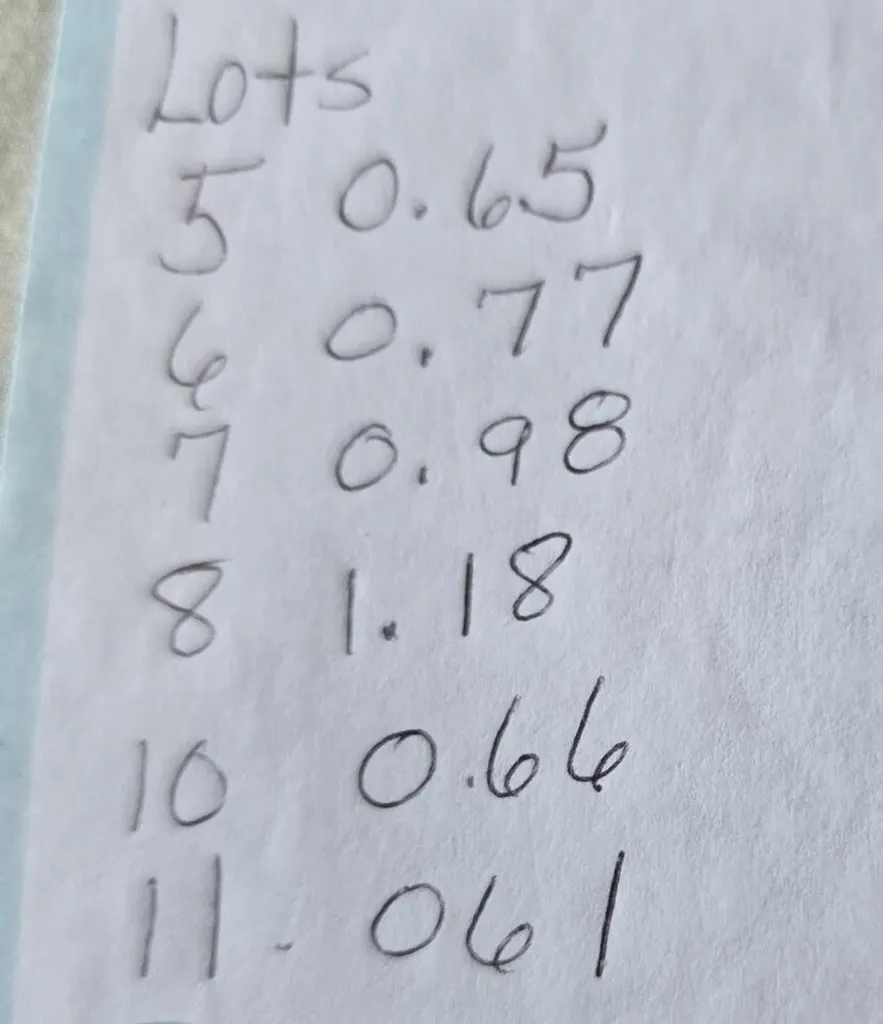 Lots
5 0.65
6 0.77
7 0.98
8 1.18
10 0.66
11. 061